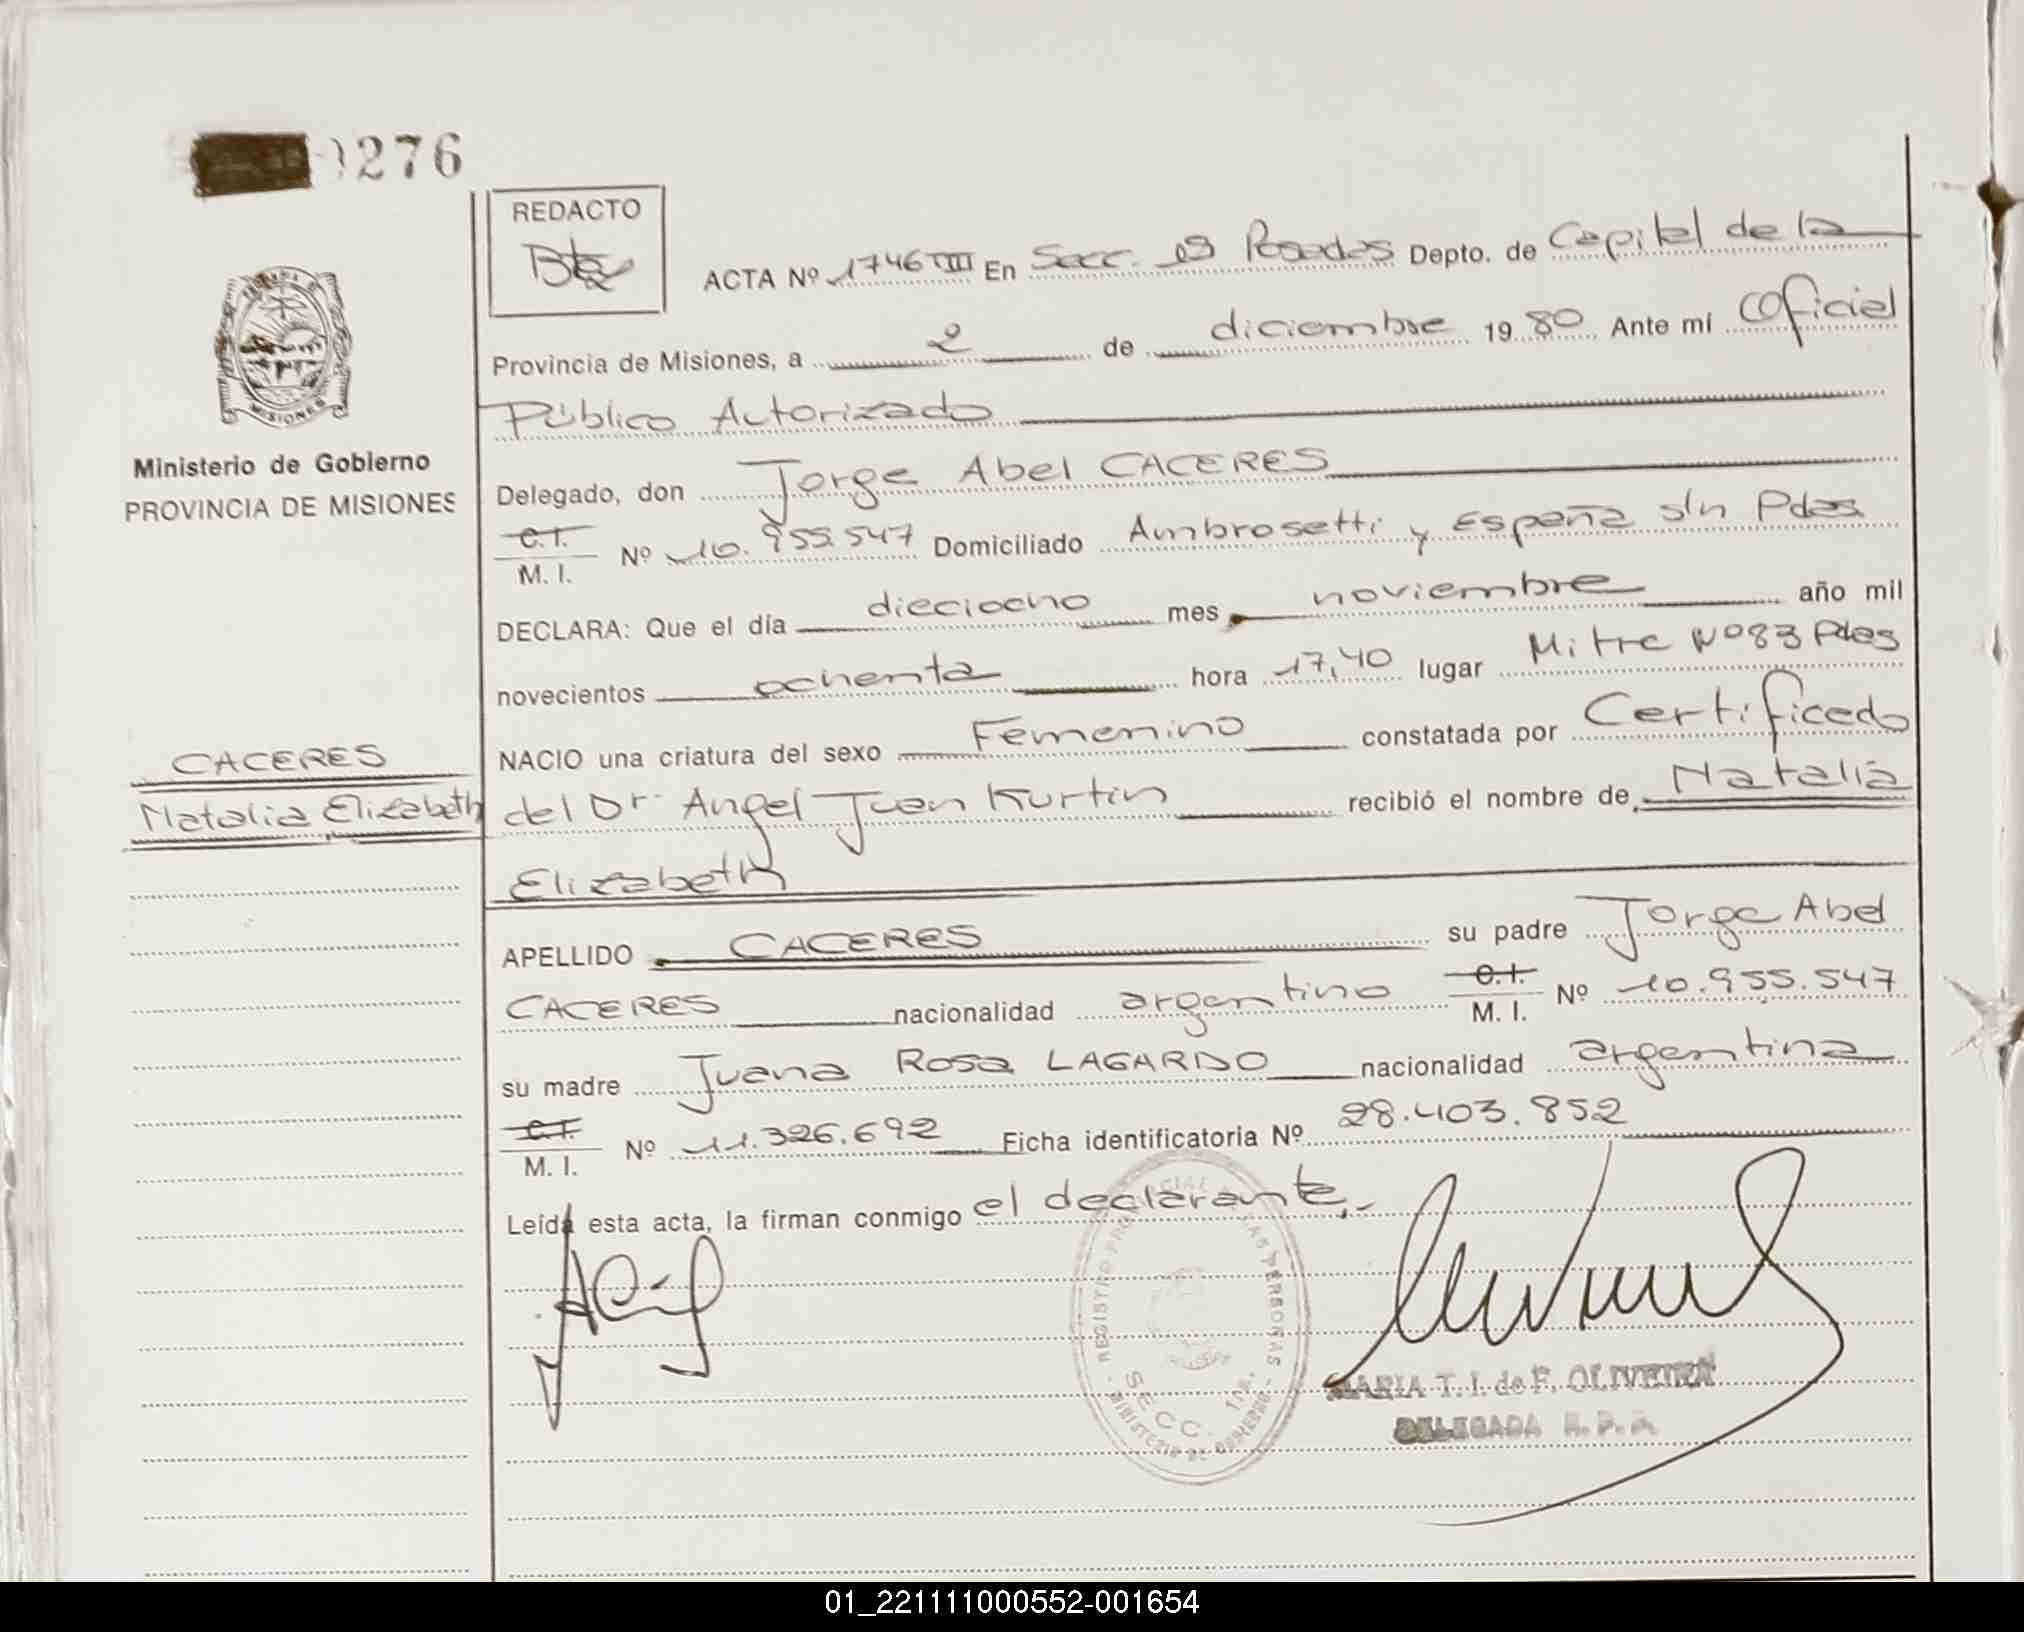 0276
REDACTO
ACTA Nº 1746 VIII En Secc. 1ª Posadas Depto. de Capital de la
Provincia de Misiones, a 2 de diciembre 19 80 Ante mí Oficial
Público Autorizado
Ministerio de Gobierno
PROVINCIA DE MISIONES
MISIONES
Delegado, don Jorge Abel CACERES
C.I. M. I. Nº 10.955.547 Domiciliado Ambrosetti y España s/n Pdas
DECLARA: Que el día dieciocho mes noviembre año mil
novecientos ochenta hora 17,40 lugar Mitre Nº 83 Pdas
NACIO una criatura del sexo Femenino constatada por Certificado
CACERES
Natalia Elizabeth
del Dr Angel Juan Kurtin recibió el nombre de Natalia
Elizabeth
APELLIDO CACERES su padre Jorge Abel
CACERES nacionalidad argentino C.I. M. I. Nº 10.955.547
su madre Juana Rosa LAGARDO nacionalidad argentina
C.I. M. I. Nº 11.326.692 Ficha identificatoria Nº 28.403.852
Leída esta acta, la firman conmigo el declarante.-
REGISTRO PROVINCIAL DE LAS PERSONAS
SECC. 1ra.
MINISTERIO DE GOBIERNO
MARIA T. I. de F. OLIVEIRA
DELEGADA R. P. P.
01_221111000552-001654